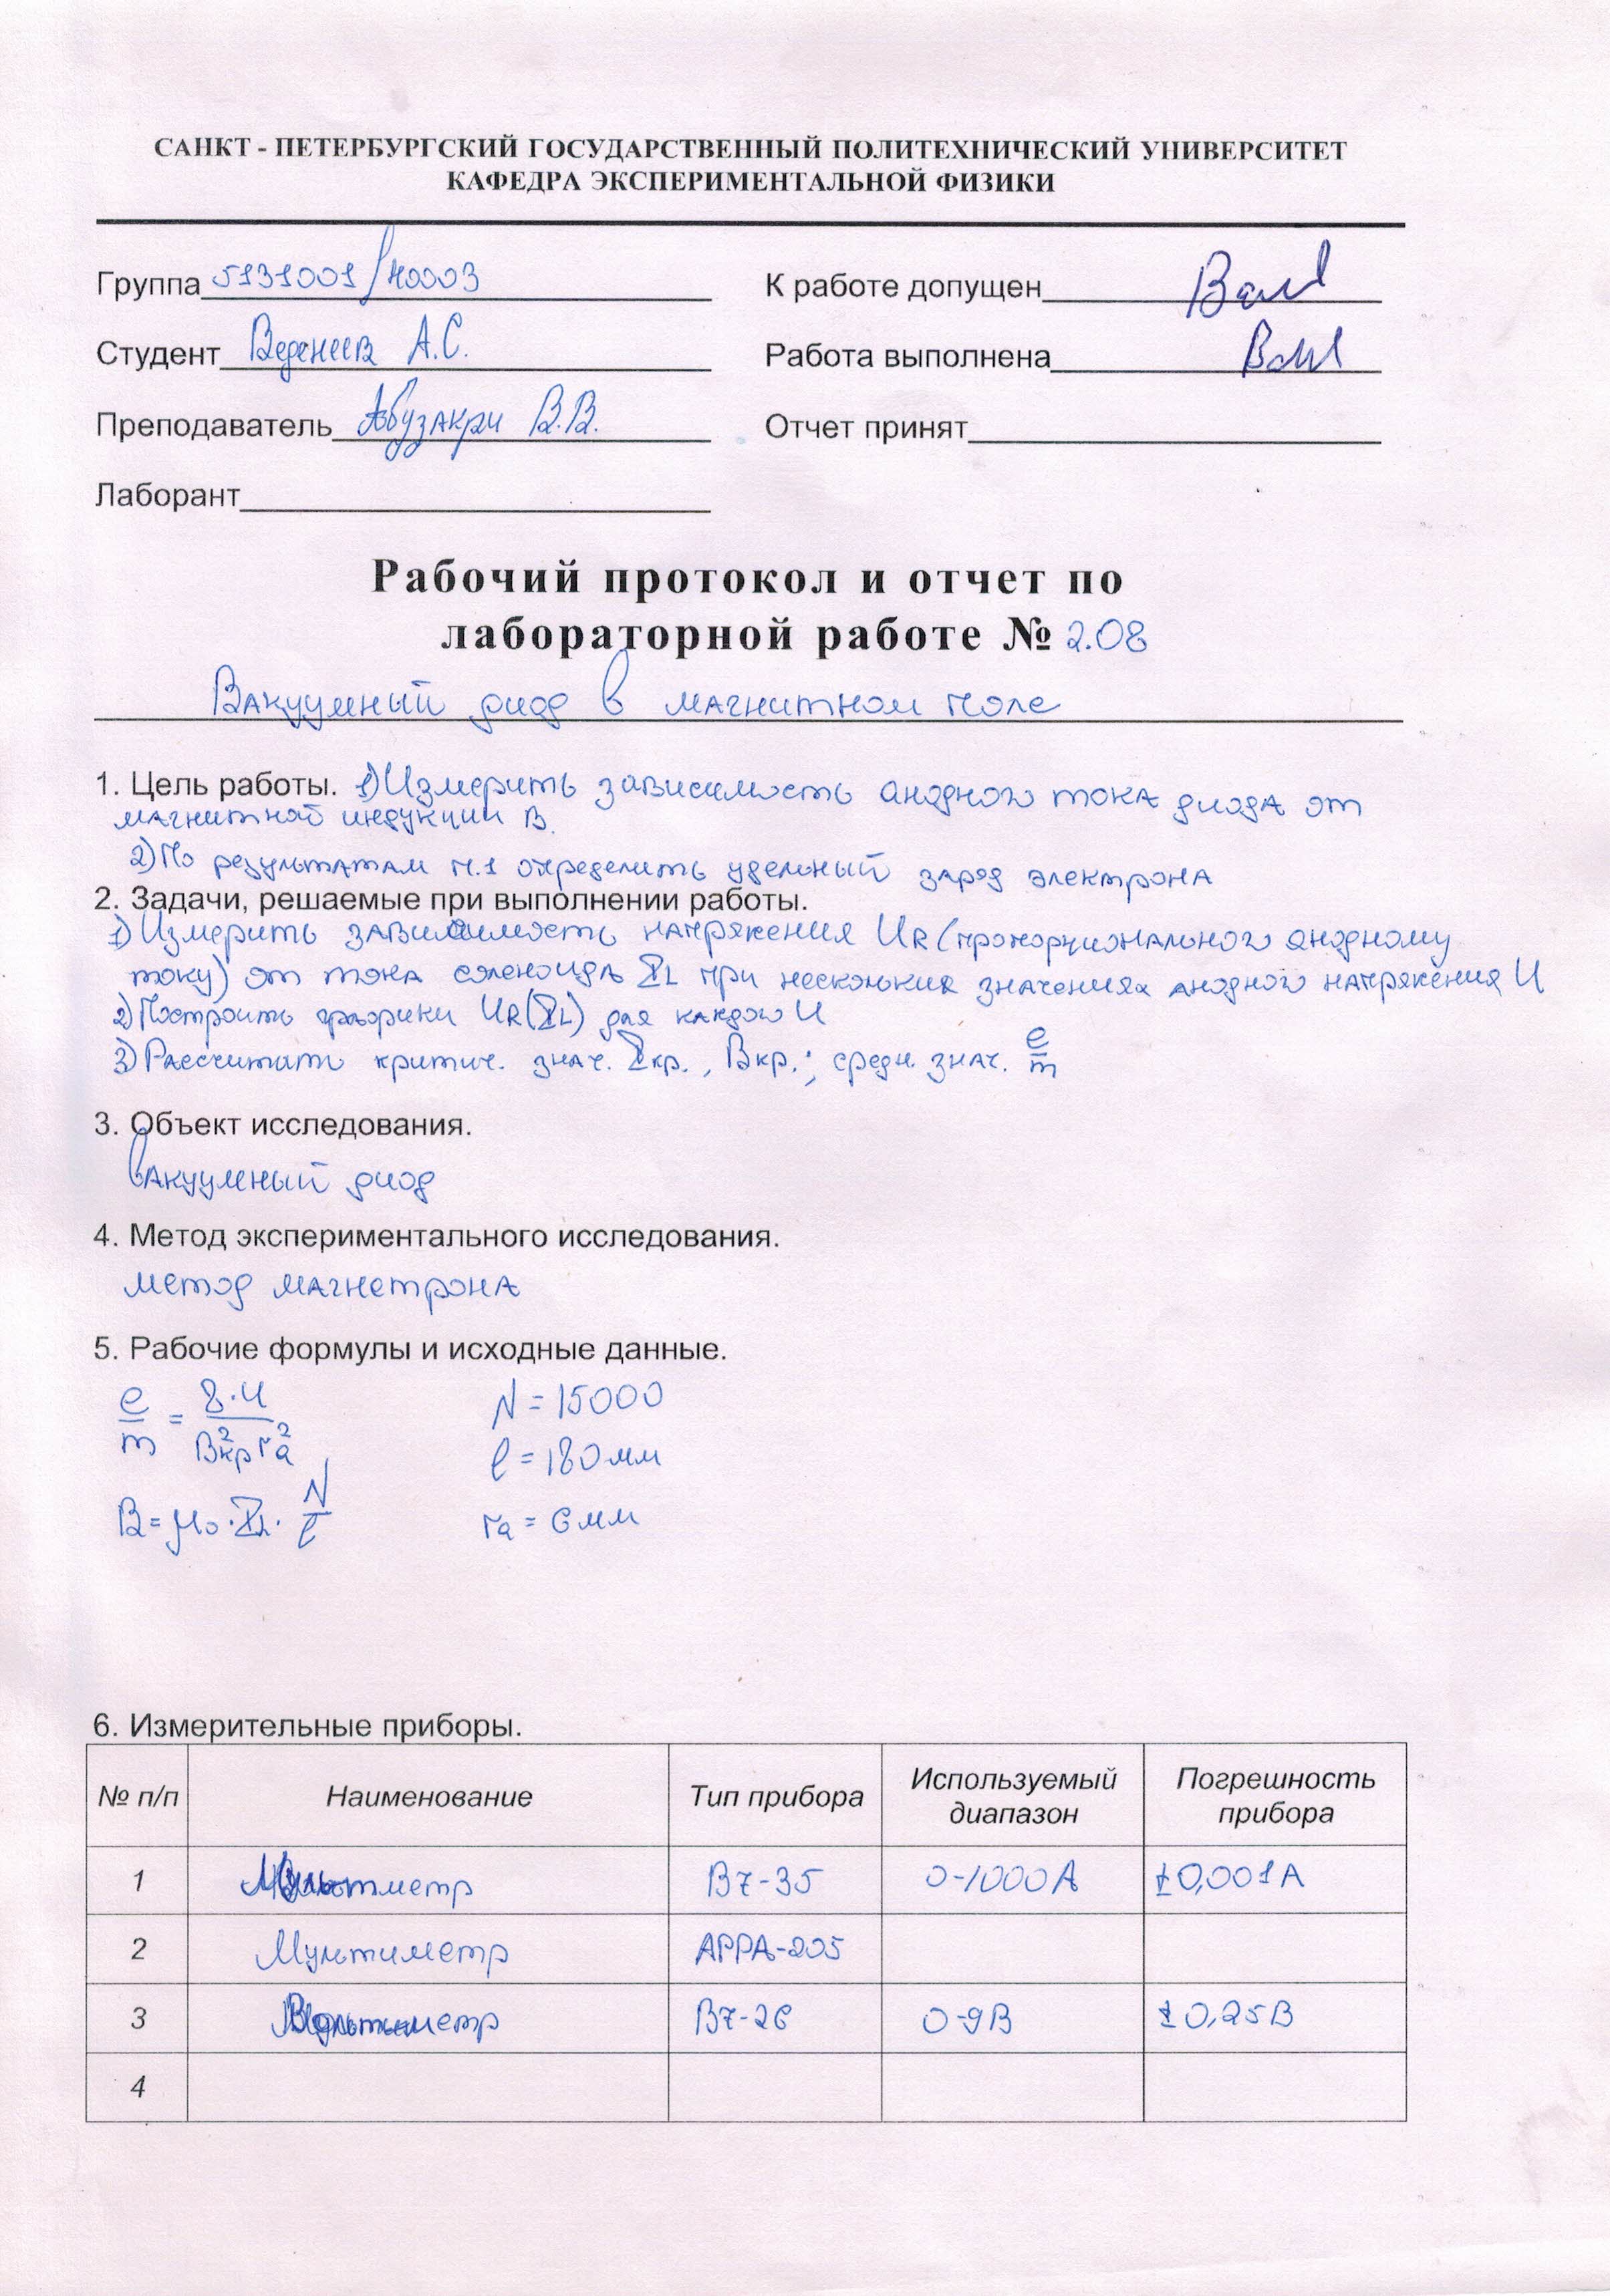 САНКТ - ПЕТЕРБУРГСКИЙ ГОСУДАРСТВЕННЫЙ ПОЛИТЕХНИЧЕСКИЙ УНИВЕРСИТЕТ
КАФЕДРА ЭКСПЕРИМЕНТАЛЬНОЙ ФИЗИКИ
Группа 5131001/40003 К работе допущен
Студент Веденеев А.С. Работа выполнена
Преподаватель Абузакри В.В. Отчет принят
Лаборант
Рабочий протокол и отчет по
лабораторной работе № 2.08
Вакуумный диод в магнитном поле
1. Цель работы. 1) Измерить зависимость анодного тока диода от
магнитной индукции B.
2) По результатам п.1 определить удельный заряд электрона
2. Задачи, решаемые при выполнении работы.
1) Измерить зависимость напряжения UR (пропорционального анодному
току) от тока соленоида IL при нескольких значениях анодного напряжения U
2) Построить графики UR(IL) для каждого U
3) Рассчитать критич. знач. Iкр., Bкр.; средн. знач. e/m
3. Объект исследования.
Вакуумный диод
4. Метод экспериментального исследования.
метод магнетрона
5. Рабочие формулы и исходные данные.
e/m = 8·U / B²кр r²a N = 15000
l = 180мм
B = μ0·IL·N/l ra = 6мм
6. Измерительные приборы.
№ п/п Наименование Тип прибора Используемый диапазон Погрешность прибора
1 В7-35 0-1000А ±0,001А
2 Мультиметр APPA-205
3 В7-26 0-9В ±0,25В
4